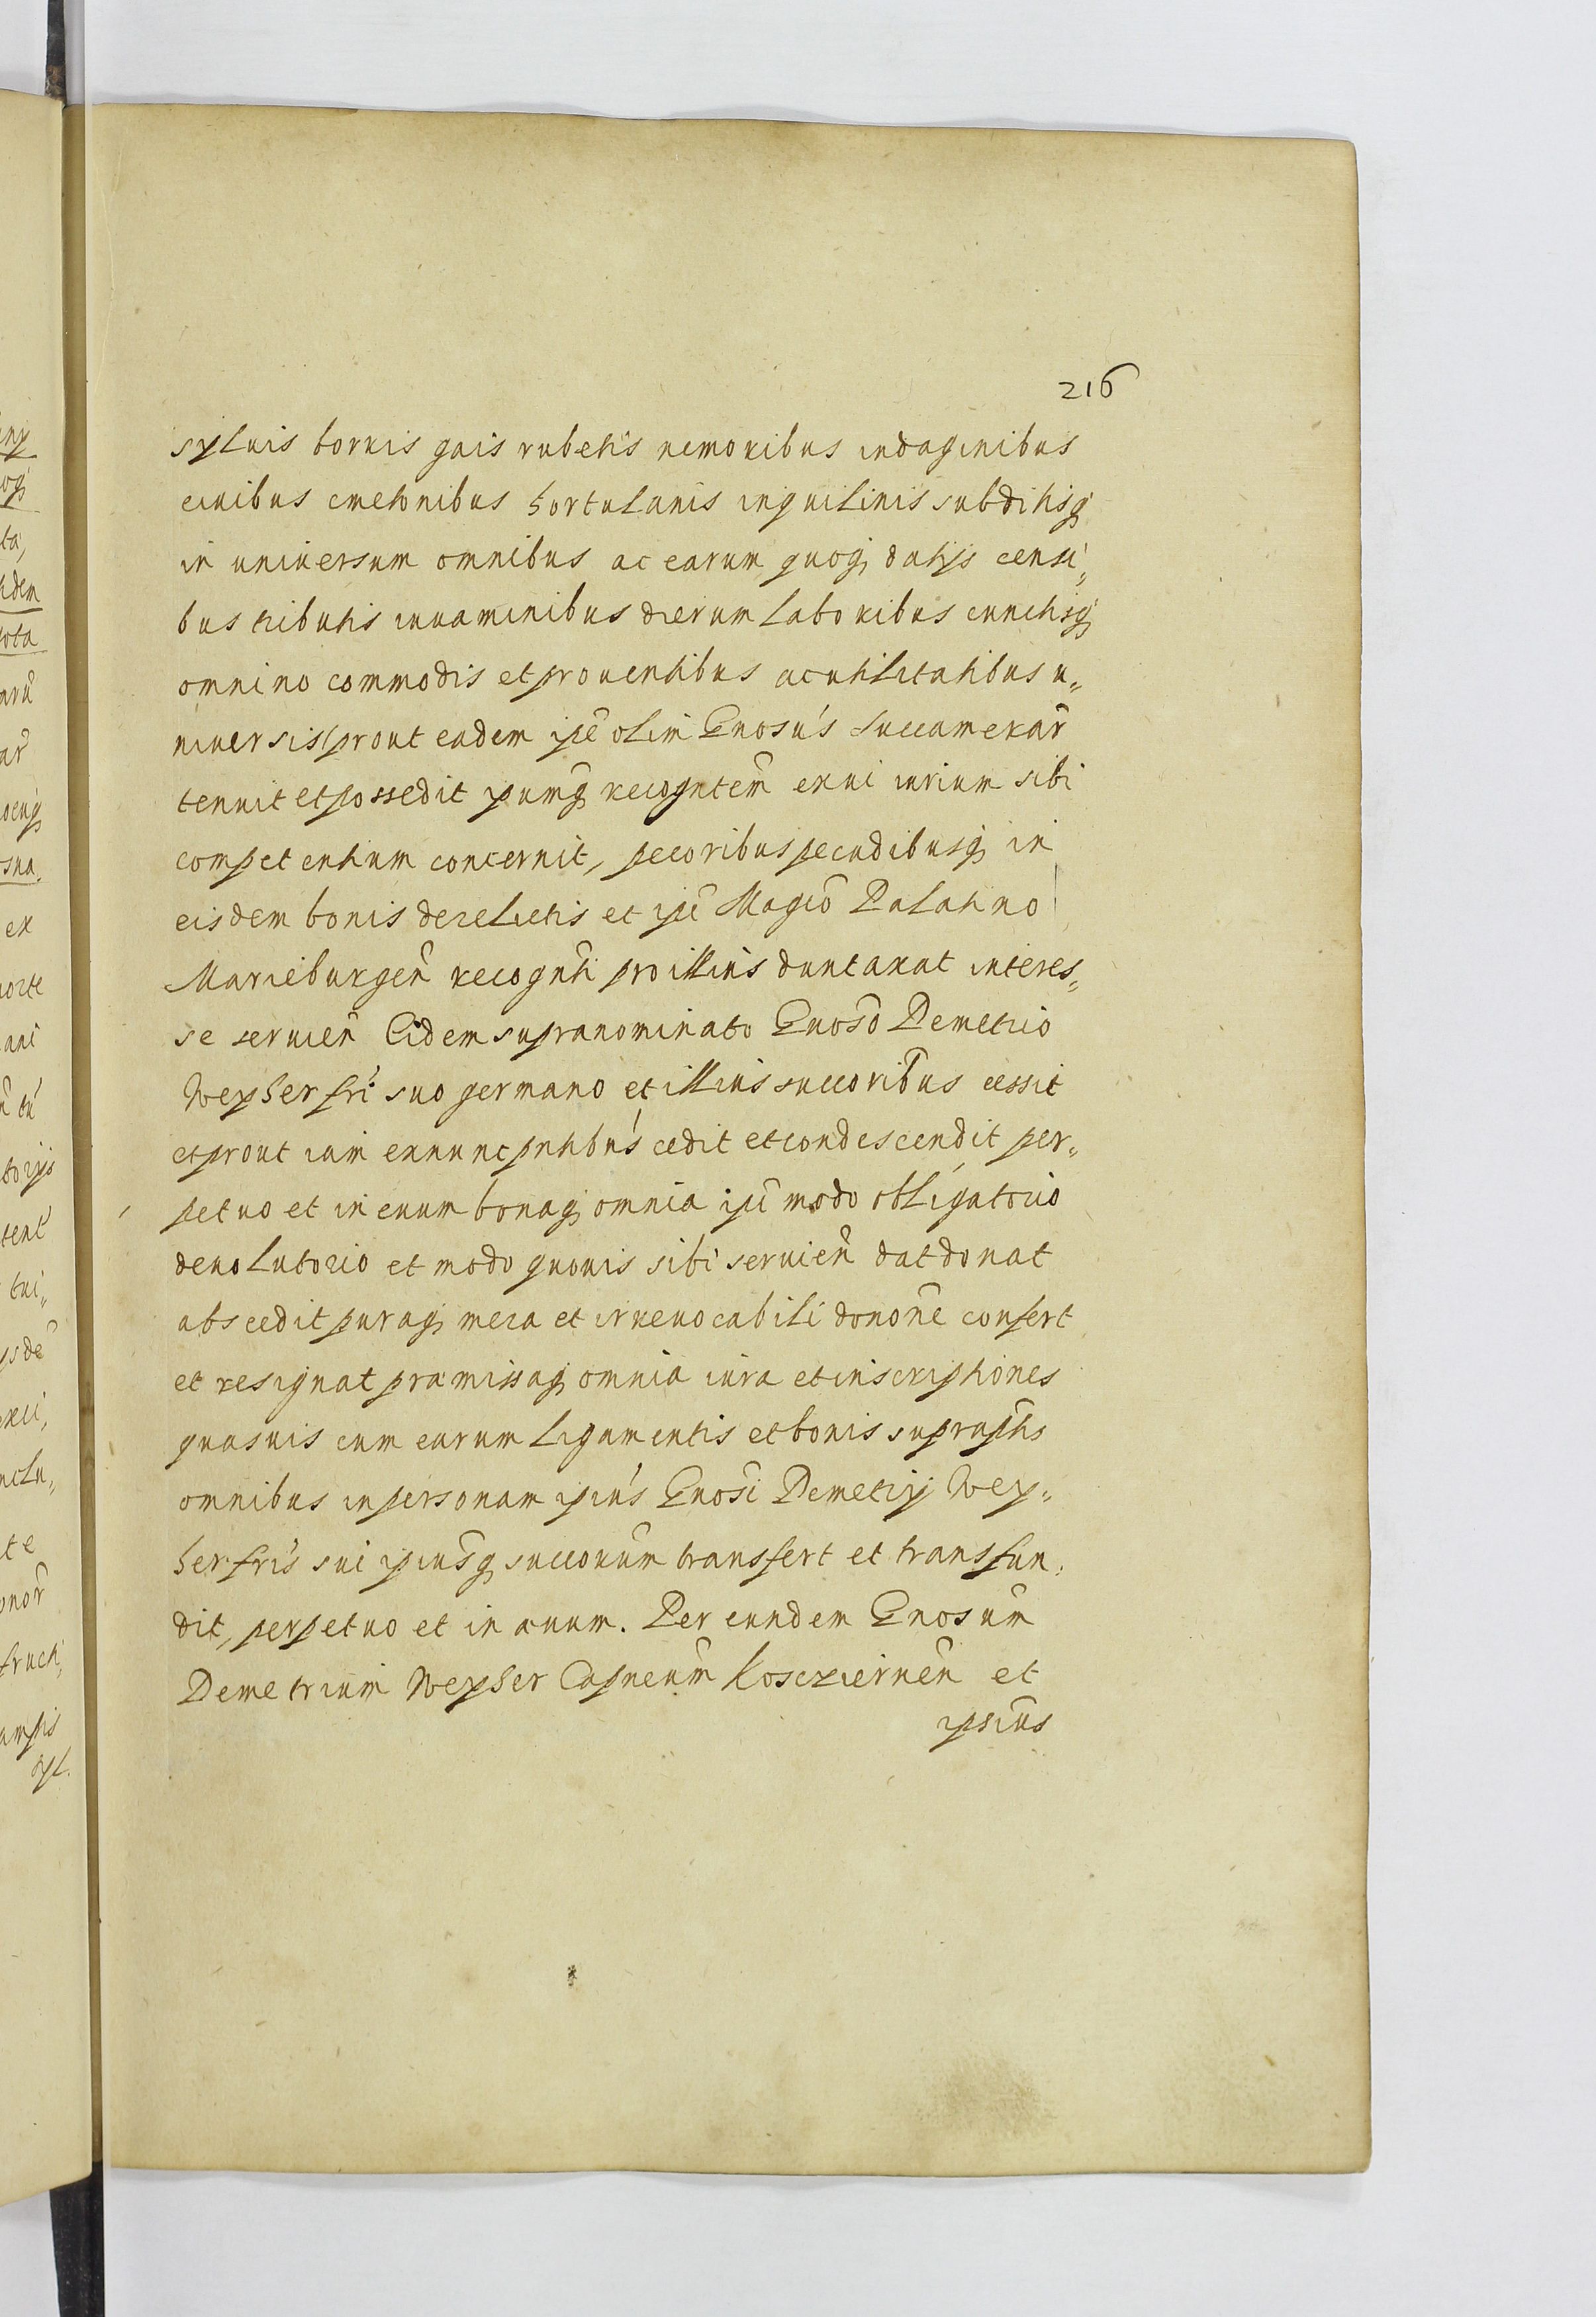 216
syluis borris gais rubetis nemoribus indaginibus
ciuibus cmetonibus hortulanis inquilinis subditisq
in uniuersum omnibus ac earum quoq datijs censi„
bus tributis iuuaminibus dierum laboribus cunctisq
omnino commodis et prouentibus ac utilitatibus u„
niuersis prout eadem ipe olim Gnosus succamerar
tenuit et possedit ipumq recogntem ex ui iurium sibi
competentium concernit, pecoribus pecudibusq in
eisdem bonis derelictis et ipi Magco Palatino
Marieburgen recognti pro illius duntaxat interes„
se seruien Eidem supranominato Gnoso Demetrio
Weyher fri suo germano et illius succoribus cessit
et prout iam exnunc pntibus cedit et condescendit per„
petuo et in euum bonaq omnia ipi modo obligatorio
deuolutorio et modo quouis sibi seruien dat donat
abscedit puraq mera et irreuocabili donone confert
et resignat præmissaq omnia iura et inscriptiones
quasuis cum earum ligamentis et bonis supraptis
omnibus in personam ipius Gnosi Demetrij Wey„
her fris sui ipiusq succorum transfert et transfun„
dit, perpetuo et in æuum. Per eundem Gnosum
Demetrium Weyher Capneum Koscziernen et
ipsius